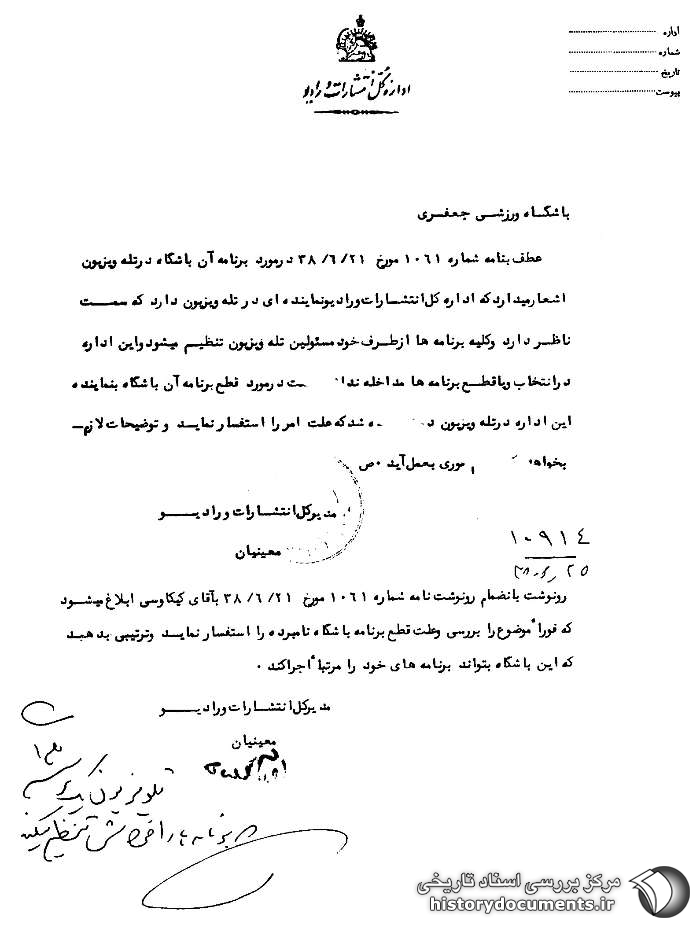 اداره
شماره
تاریخ
پیوست
اداره کل انتشارات و رادیو
باشگاه ورزشی جعفری
عطف بنامه شماره ۱۰۶۱ مورخ ۳۸/۶/۲۱ درمورد برنامه آن باشگاه درتله ویزیون
اشعارمیدارد که اداره کل انتشارات ورادیو نماینده ای در تله ویزیون دارد که سمت
ناظر دارد وکلیه برنامه ها ازطرف خود مسئولین تله ویزیون تنظیم میشود واین اداره
درانتخاب ویا قطع برنامه ها مداخله درمورد قطع برنامه آن باشگاه بنماینده
این اداره درتله ویزیون شد که علت امر را استفسار نماید و توضیحات لازم
بعمل آید ۰ص
مدیرکل انتشارات ورادیو
معینیان
۱۰۹۱۴
۳۸٫۶٫۲۵
رونوشت بانضمام رونوشت نامه شماره ۱۰۶۱ مورخ ۳۸/۶/۲۱ بآقای کیکاوسی ابلاغ میشود
که فوراً موضوع را بررسی وعلت قطع برنامه باشگاه نامبرده را استفسار نماید وترتیبی بدهید
که این باشگاه بتواند برنامه های خود را مرتباً اجراکند ۰
مدیرکل انتشارات ورادیو
معینیان
تلویزیون
برنامه ها را خودش تنظیم میکند
مرکز بررسی اسناد تاریخی
historydocuments.ir